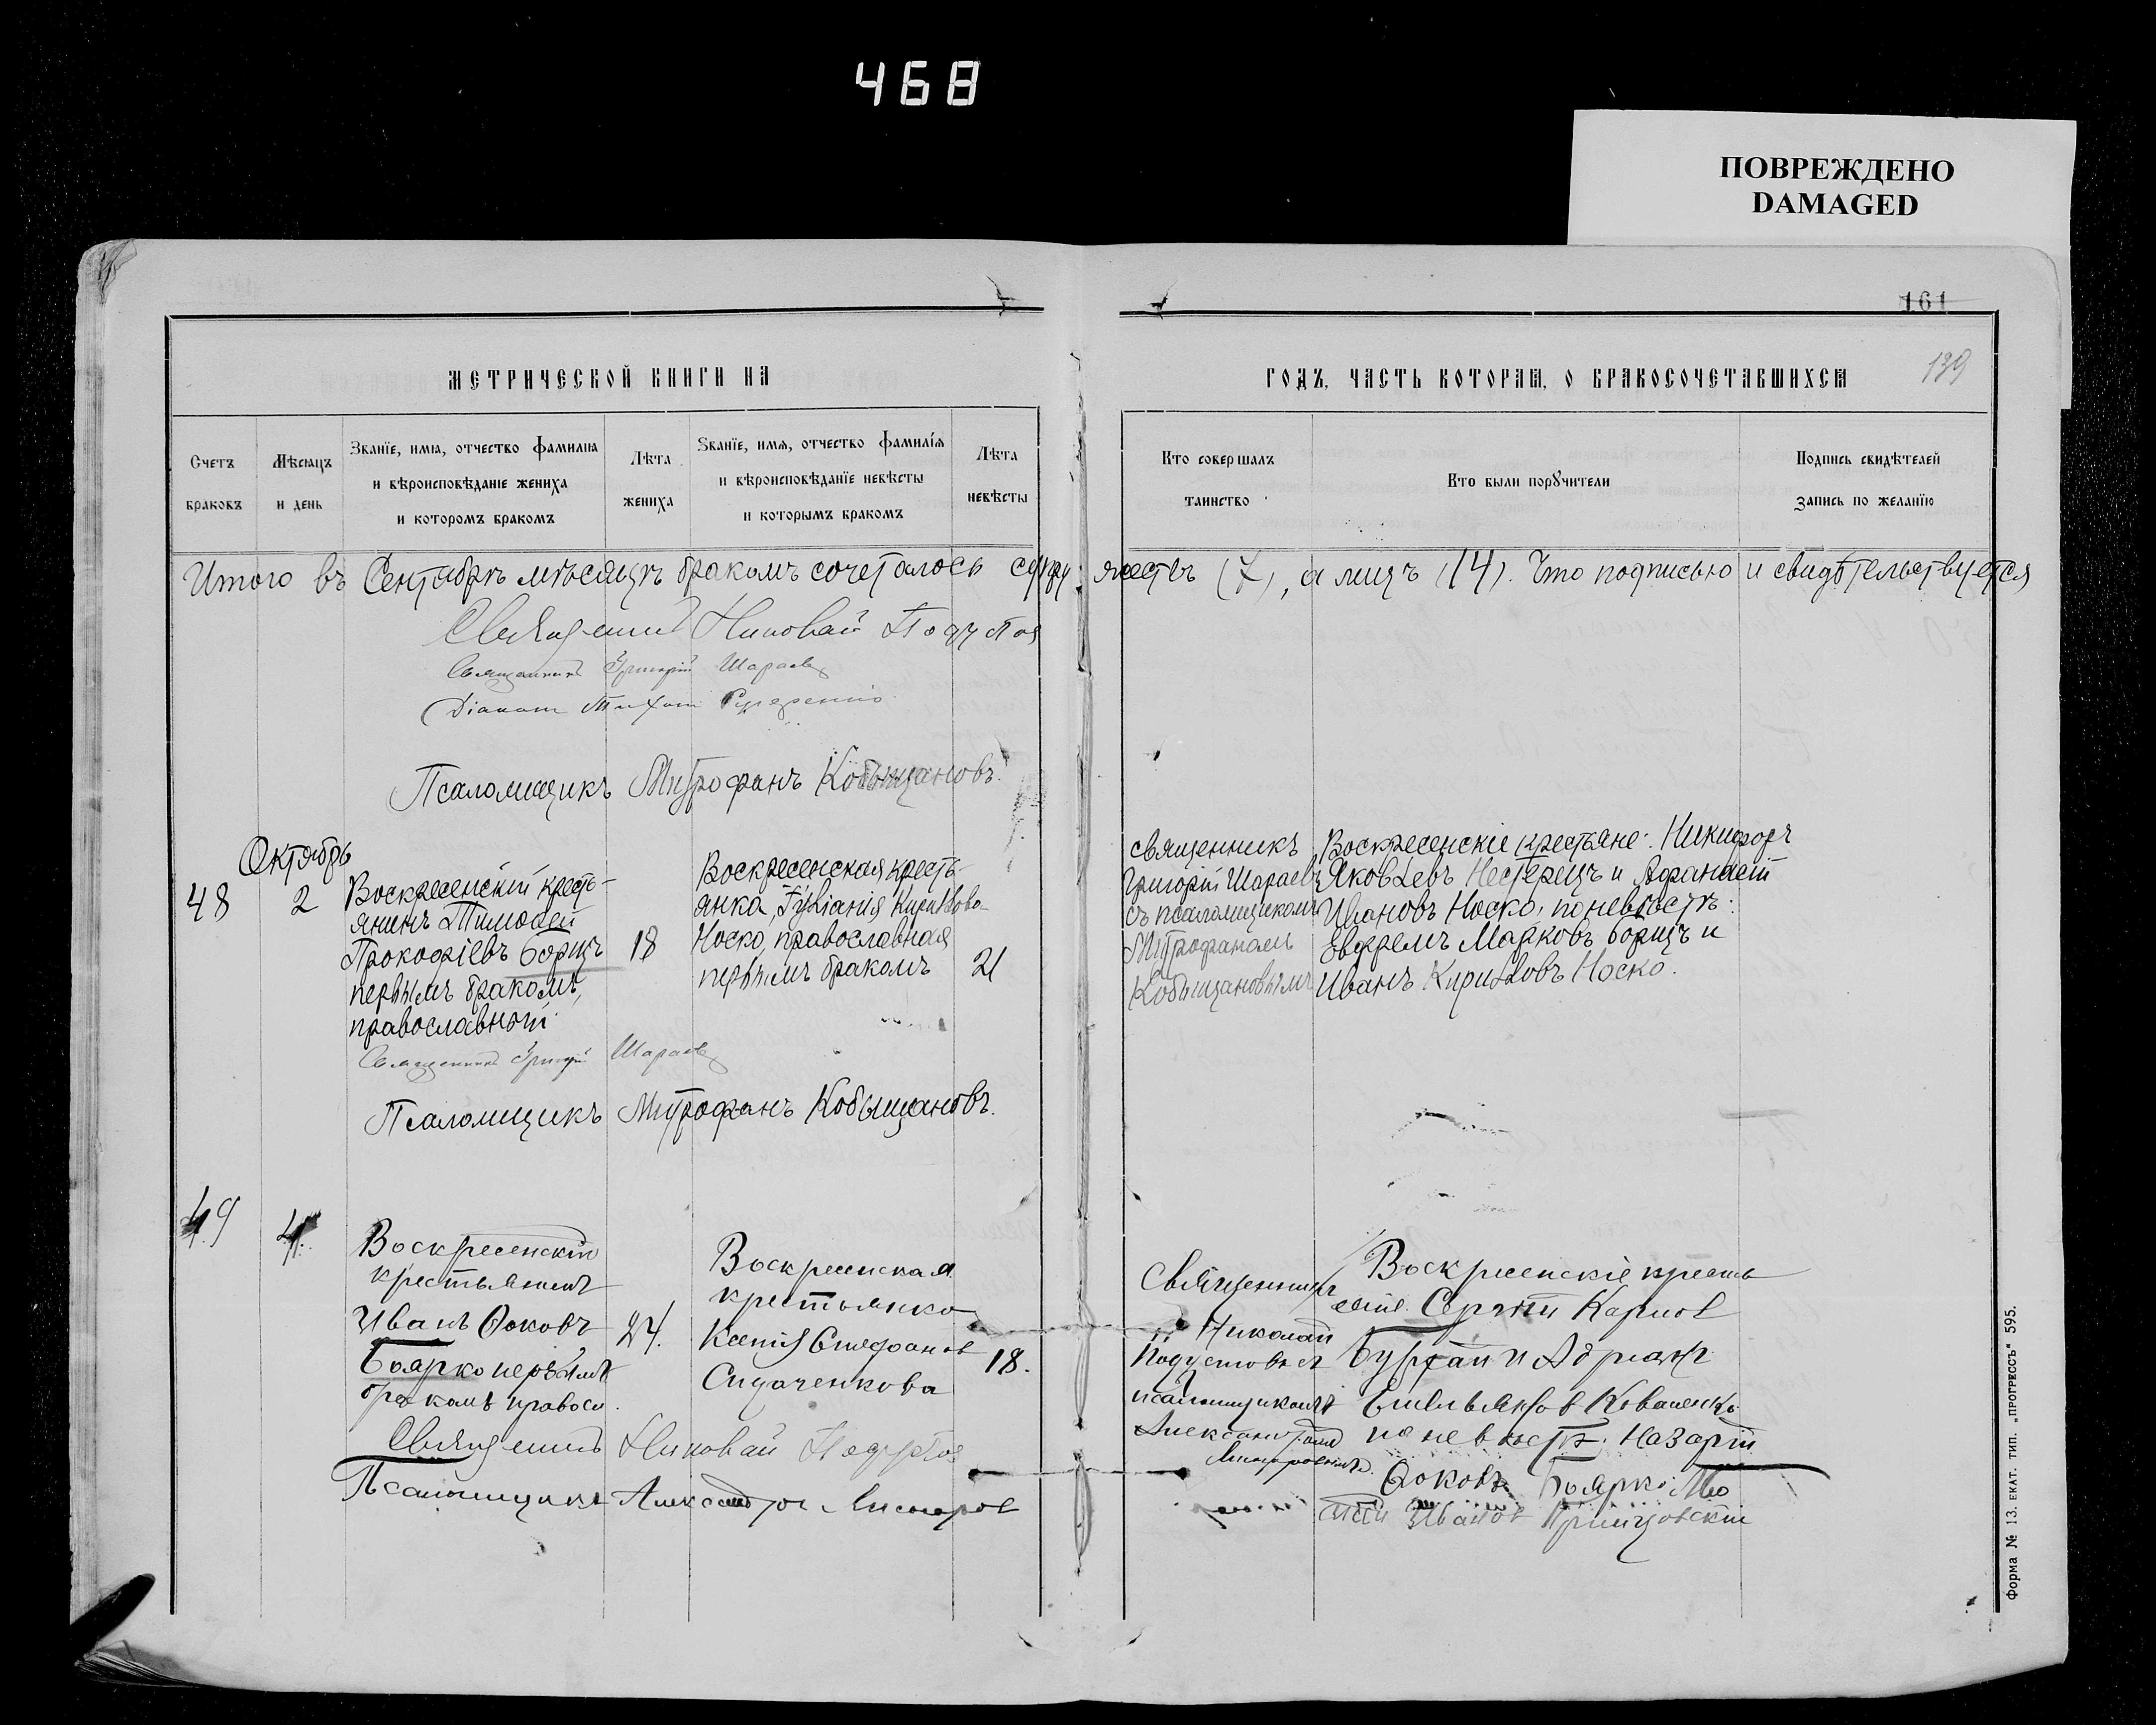 468
ПОВРЕЖДЕНО
DAMAGED
161
139
МЕТРИЧЕСКОЙ КНИГИ НА
ГОДЪ, ЧАСТЬ КОТОРАЯ, О БРАКОСОЧЕТАВШИХСЯ
Счетъ
браковъ
Мѣсяцъ
и день
Званїе, имя, отчество фамилія
и вѣроисповѣданїе жениха
и которомъ бракомъ
Лѣта
жениха
Званїе, имя, отчество фамилїя
и вѣроисповѣданїе невѣсты
и которымъ бракомъ
Лѣта
невѣсты
Кто совершалъ
таинство
Кто были поручители
Подпись свидѣтелей
запись по желанїю
Итого въ Сентябрѣ мѣсяцѣ бракомъ сочеталось супружествъ (7), а лицъ (14). Что подписью и свидѣтельствуется
Священникъ Николай
Священникъ Григорій Шараевъ
Діаконъ
Псаломщикъ Митрофанъ Кобыщановъ.
Октябрь
48
2
Воскресенскій кресть-
янинъ Тимоѳей
Прокофіевъ Борщъ
первымъ бракомъ,
православный.
18
Воскресенская кресть-
янка, Гуліанія Кириллова-
Носко, православная
первымъ бракомъ
21
священникъ
Григорій Шараевъ
съ псаломщикомъ
Митрофаномъ
Кобыщановымъ
Воскресенскіе крестьяне: Никифоръ
Яковлевъ Нестерецъ и Афанасій
Ивановъ Носко, по невѣстѣ:
Евфремъ Марковъ Борщъ и
Иванъ Кирилловъ Носко.
Священникъ Григорій Шараевъ
Псаломщикъ Митрофанъ Кобыщановъ.
49
4
Воскресенскій
крестьянинъ
Иванъ Ѳоковъ
Боярко первымъ
бракомъ правосл.
24.
Воскресенская
крестьянка
Ксенія Стефанов
Сидаченкова
18.
Священникъ
Николай
псаломщикомъ
Александромъ
Воскресенскіе кресть
Сергѣй Карпов
и Адріанъ
Емельянов Коваленко
по невѣстѣ: Назарій
Ѳоковъ Боярко
Иванов
Священникъ Николай
Псаломщикъ Александръ
Форма № 13. ЕКАТ. ТИП. „ПРОГРЕССЪ“ 595.